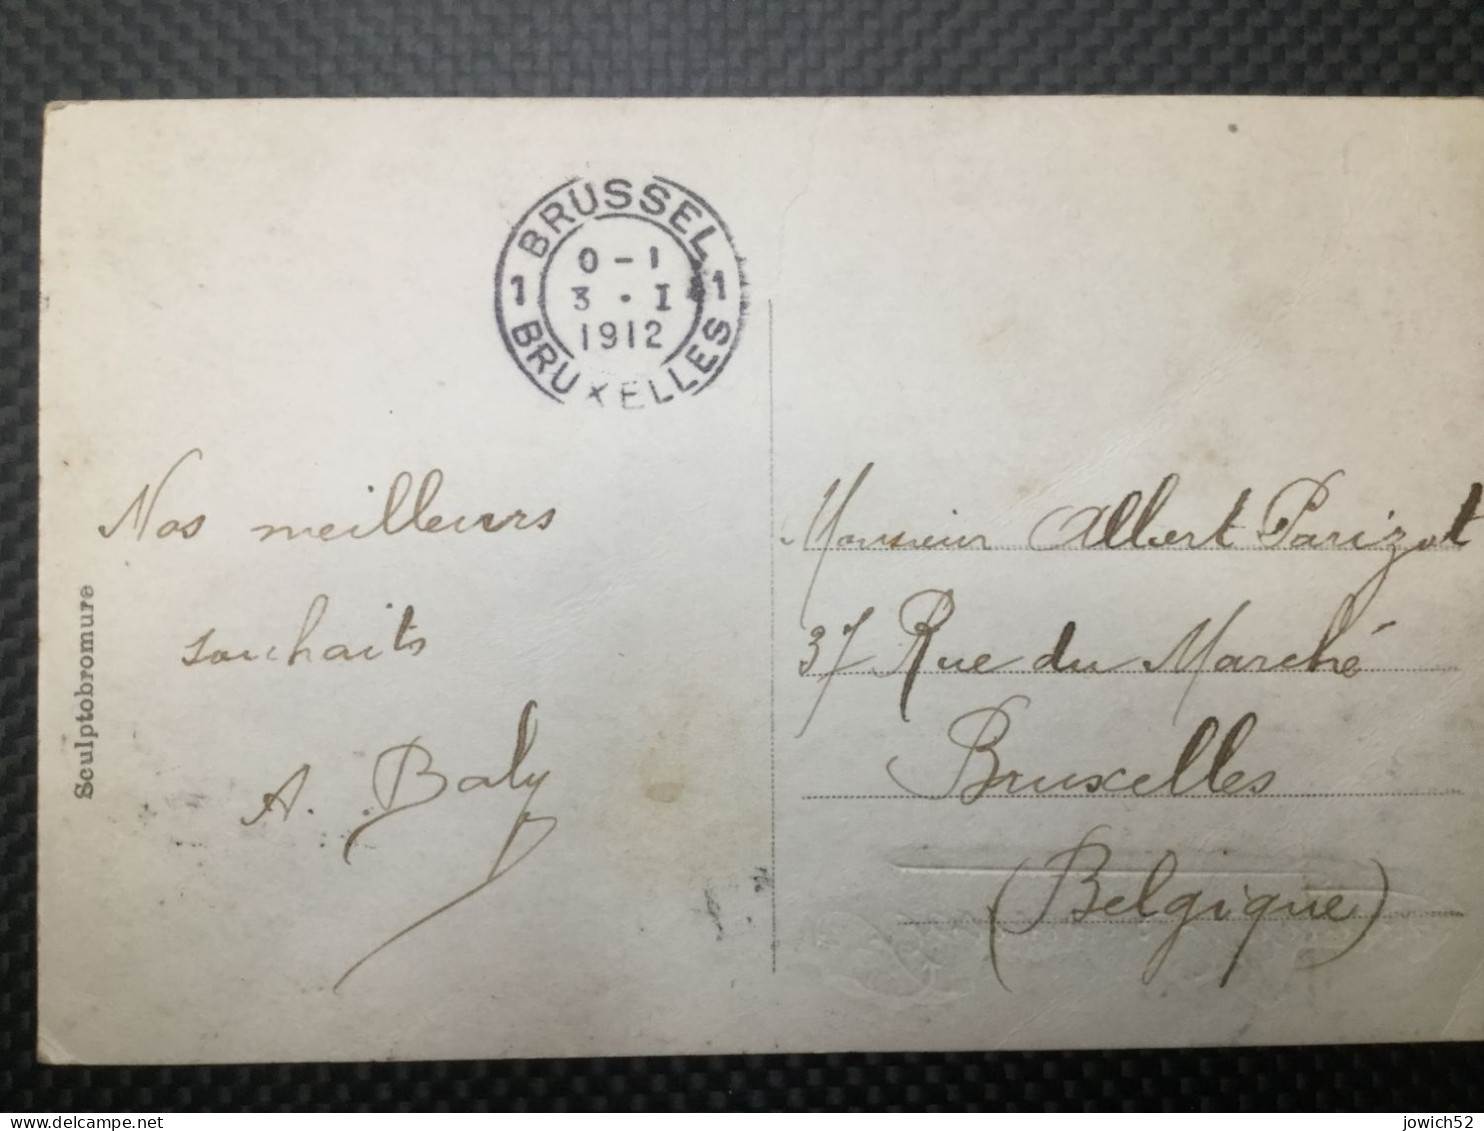 BRUSSEL
0-1
3 · I
1912
1 1
BRUXELLES
Sculptobromure
Nos meilleurs
souhaits
A. Baly
Monsieur Albert Parizot
37 Rue du Marché
Bruxelles
(Belgique)
jowich52